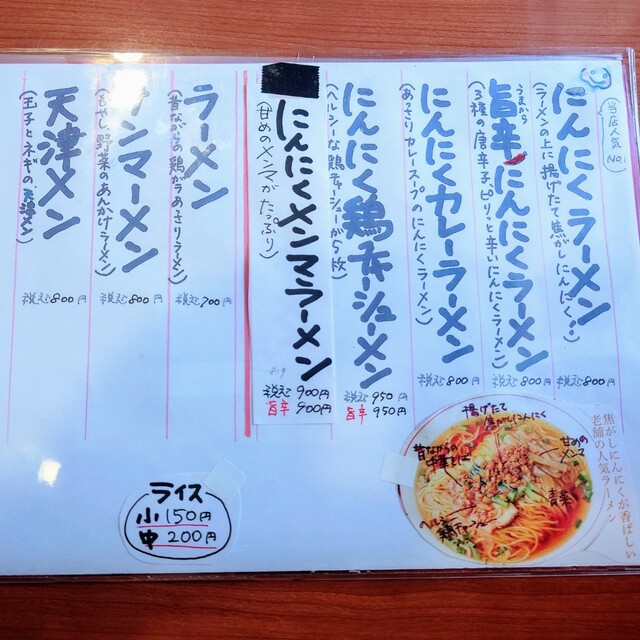 (当店人気No.1)
にんにくラーメン
(ラーメンの上に揚げたて焦がしにんにく…)
税込800円
うまから
旨辛にんにくラーメン
(3種の唐辛子ピリッと辛いにんにくラーメン)
税込800円
にんにくカレーラーメン
(あっさりカレースープのにんにくラーメン)
税込800円
にんにく鶏チャーシューメン
(ヘルシーな鶏チャーシューが5枚)
税込950円
旨辛950円
にんにくメンマラーメン
(甘めのメンマがたっぷり)
税込900円
旨辛900円
ラーメン
(昔ながらの鶏ガラあさりラーメン)
税込700円
サンマーメン
(もやし野菜のあんかけラーメン)
税込800円
天津メン
(玉子とネギの
税込800円
ライス
小150円
中200円
揚げたて
焦がしにんにく
昔ながらの
中華そば
甘めの
メンマ
青菜
焦がしにんにくが香ばしい
老舗の人気ラーメン